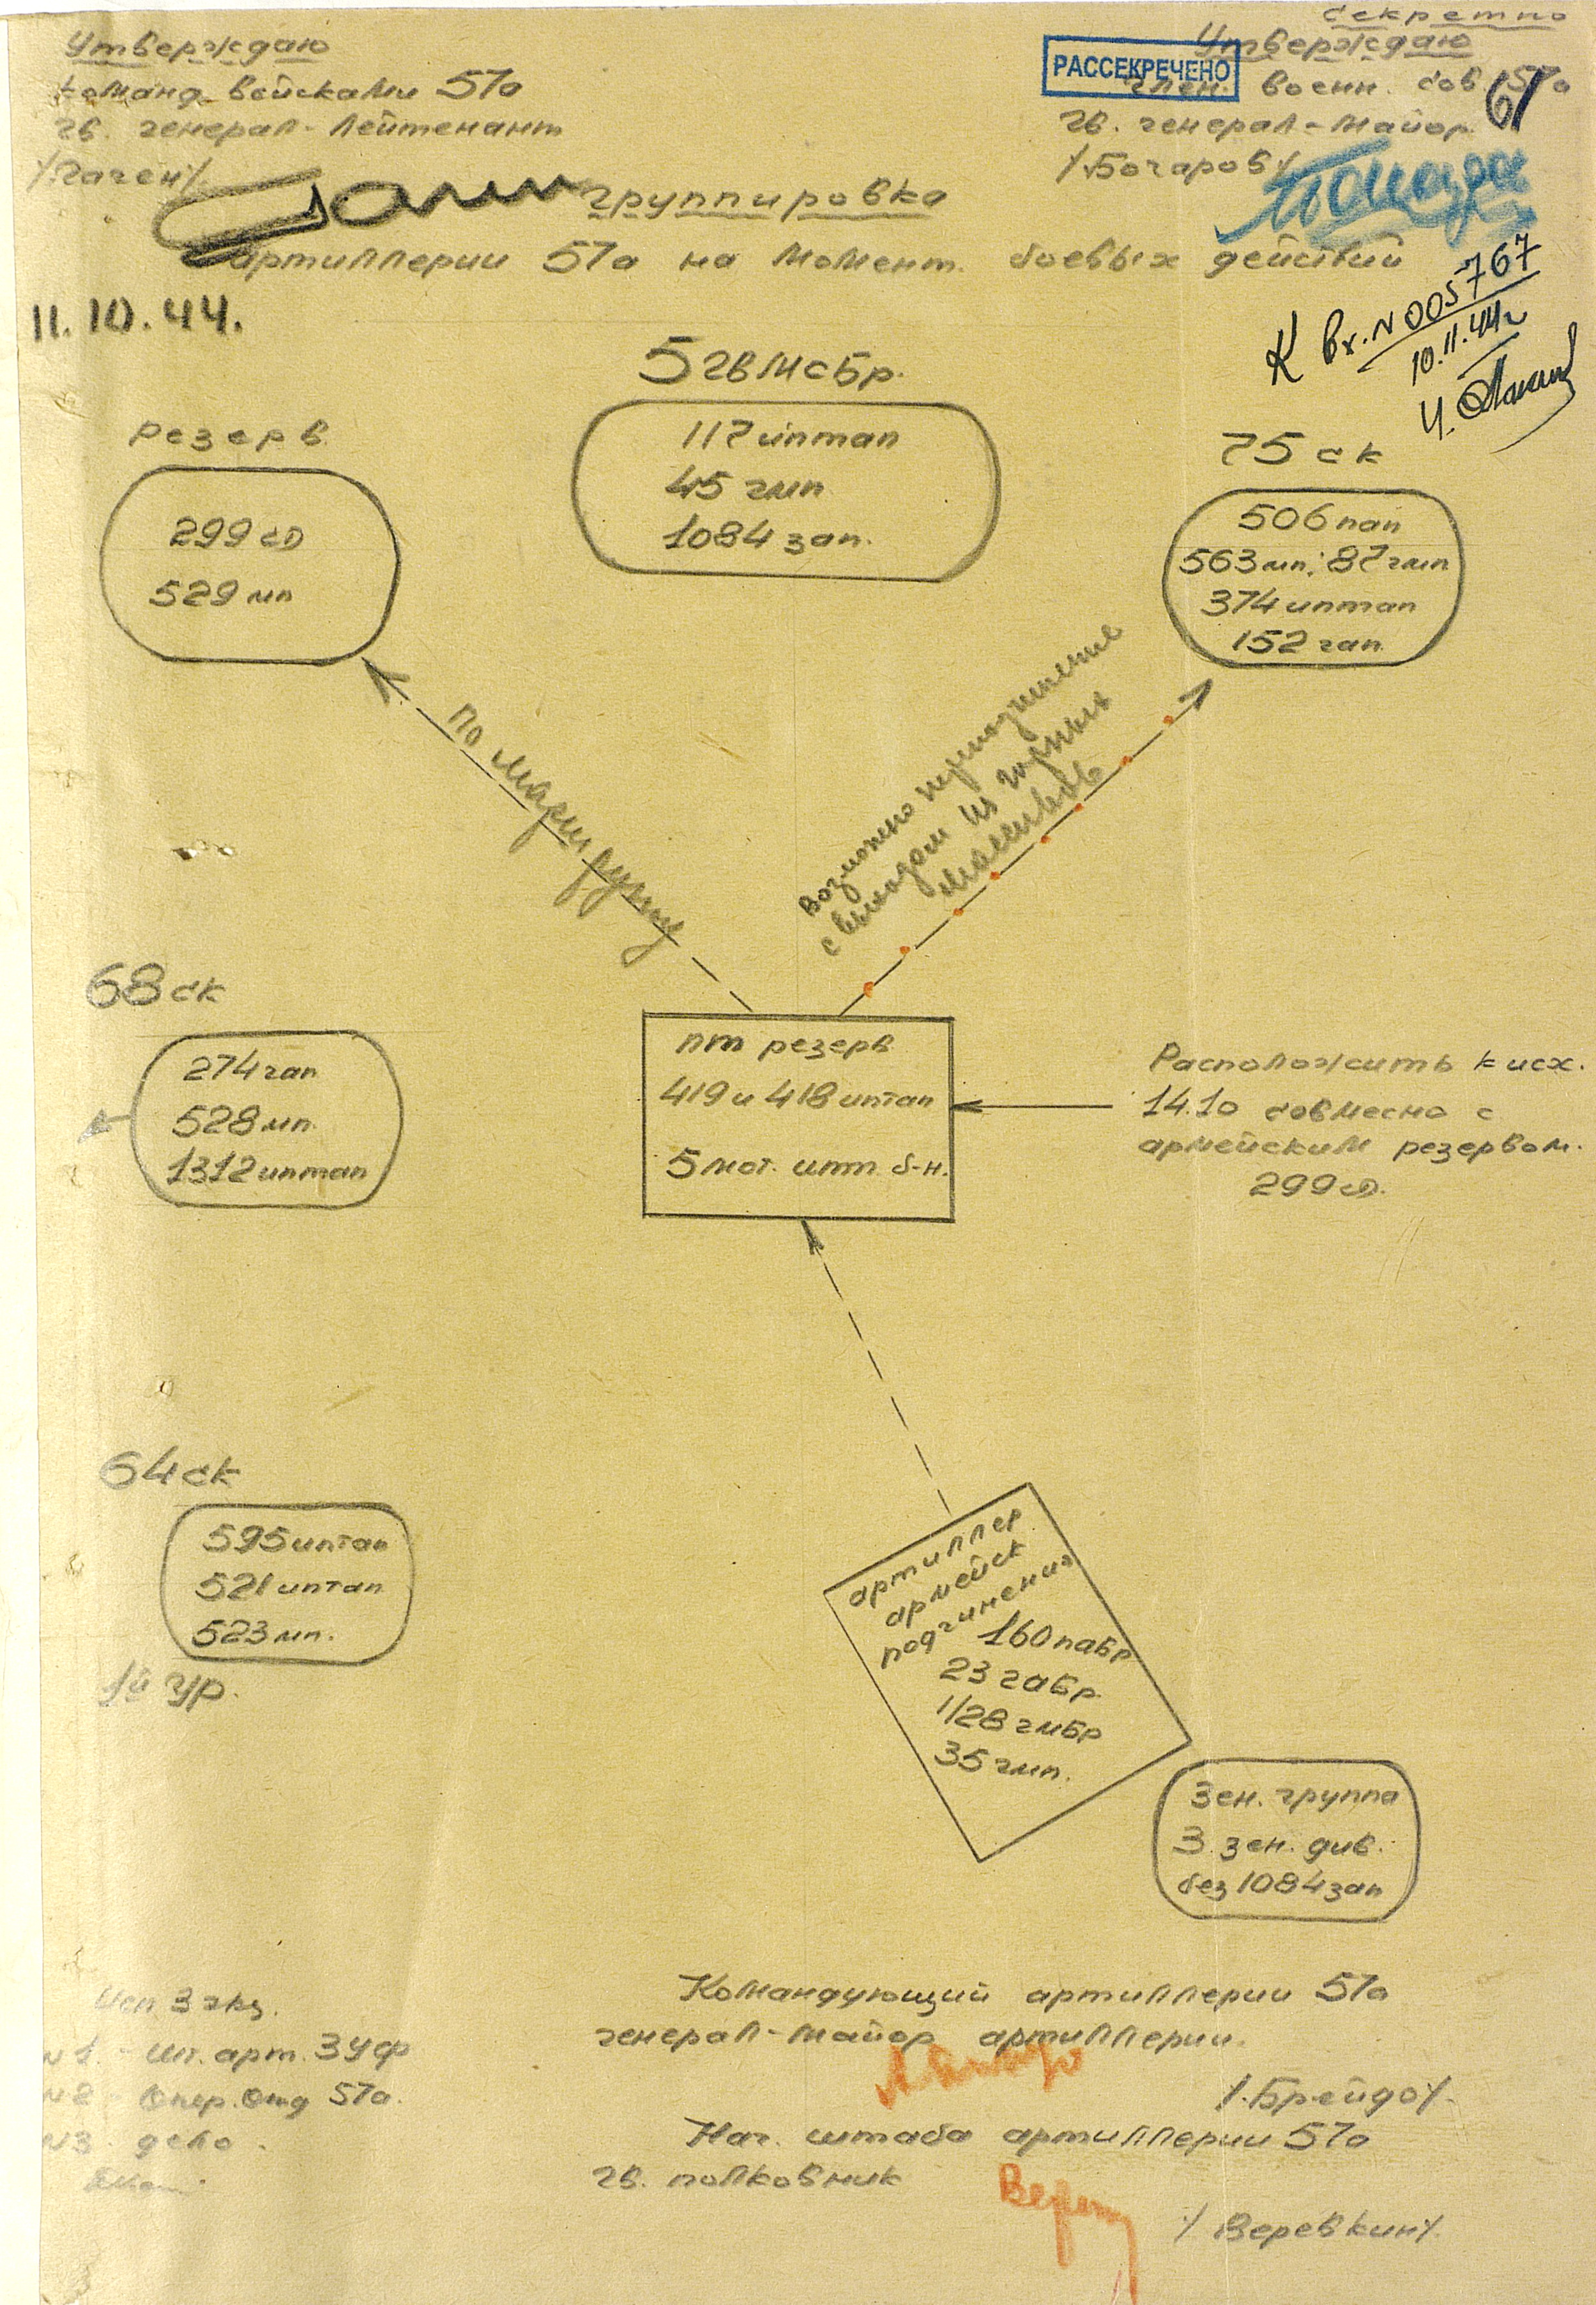 Секретно
Утверждаю
команд. войсками 57а
гв. генерал-лейтенант
/Гаген/
РАССЕКРЕЧЕНО
Утверждаю
член. воен. сов. 57а
гв. генерал-майор
/Бочаров/
61
группировка
артиллерии 57а на момент боевых действий
11.10.44.
К вх. N 005767
10.11.44г
5 гв мсбр.
117 иптап
45 гмп
1084 зап.
резерв
299 сд
529 мп
75 ск
506 пап
563 мп; 87 гмп
374 иптап
152 гап
По маршруту
Возможно переподчинение
с выходом из горных
массивов
68 ск
274 гап
528 мп.
1312 иптап
пт резерв
419 и 418 иптап
5 мот. ипт. б-н.
Расположить к исх.
14.10 совмесно с
армейским резервом.
299 сд.
64 ск
595 иптап
521 иптап
523 мп.
1й ур.
артиллер
армейск
подчинения
160 пабр
23 габр
1/28 гмбр
35 гмп.
Зен. группа
3 зен. див.
без 1084 зап
Исп 3 экз.
N1 - шт. арт. 3УФ
N2 - Опер. Отд 57а.
N3 - дело.
Командующий артиллерии 57а
генерал-майор артиллерии.
/.Брейдо/.
Нач. штаба артиллерии 57а
гв. полковник
/ Веревкин/.